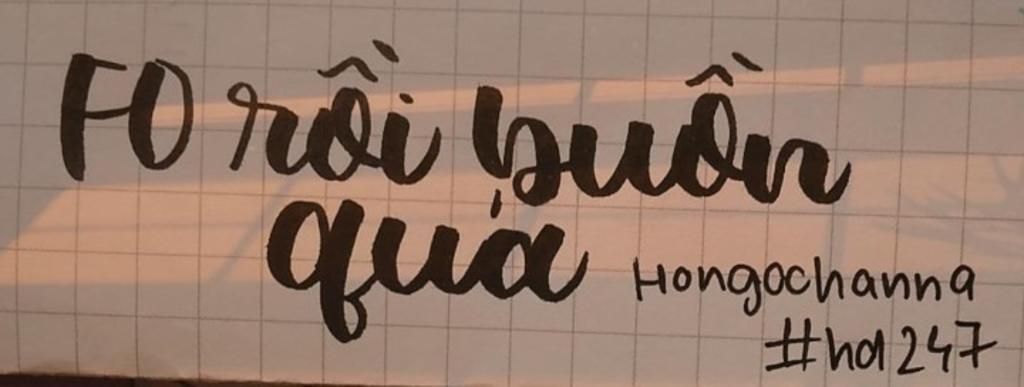 F0 rồi buồn
quá
Hongochanna
#hd247